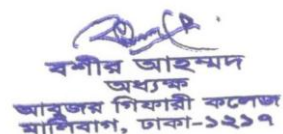 বশীর আহম্মদ
অধ্যক্ষ
আবুজর গিফারী কলেজ
মালিবাগ, ঢাকা-১২১৭